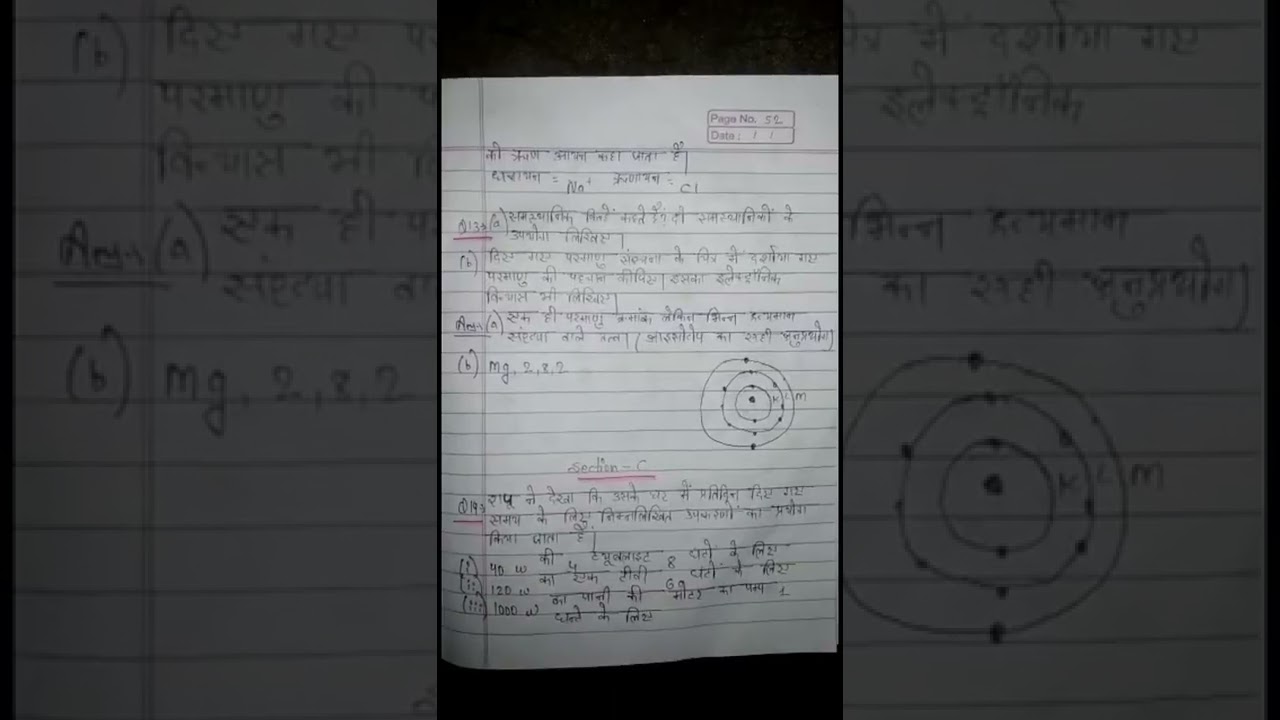 Page No. 52
Date : / /
को ऋण आयन कहा जाता है।
धनायन = Na+ ऋणायन = Cl
Q13→ (a) समस्थानिक किसे कहते हैं? दो समस्थानिकों के
उपयोग लिखिए।
(b) दिए गए परमाणु संरचना के चित्र में दर्शाया गए
परमाणु की पहचान कीजिए। इसका इलेक्ट्रॉनिक
विन्यास भी लिखिए।
(a) एक ही परमाणु क्रमांक लेकिन भिन्न द्रव्यमान
संख्या वाले तत्व। (आइसोटोप का सही अनुप्रयोग)
(b) Mg, 2,8,2
K L M
Section - C
Q14→ राजू ने देखा कि उसके घर में प्रतिदिन दिए गए
समय के लिए निम्नलिखित उपकरणों का प्रयोग
किया जाता है।
(i) 40 W की 4 ट्यूबलाइट 8 घंटों के लिए
(ii) 120 W का एक टीवी 6 घंटों के लिए
(iii) 1000 W का पानी की मोटर का पम्प 1
घन्टे के लिए